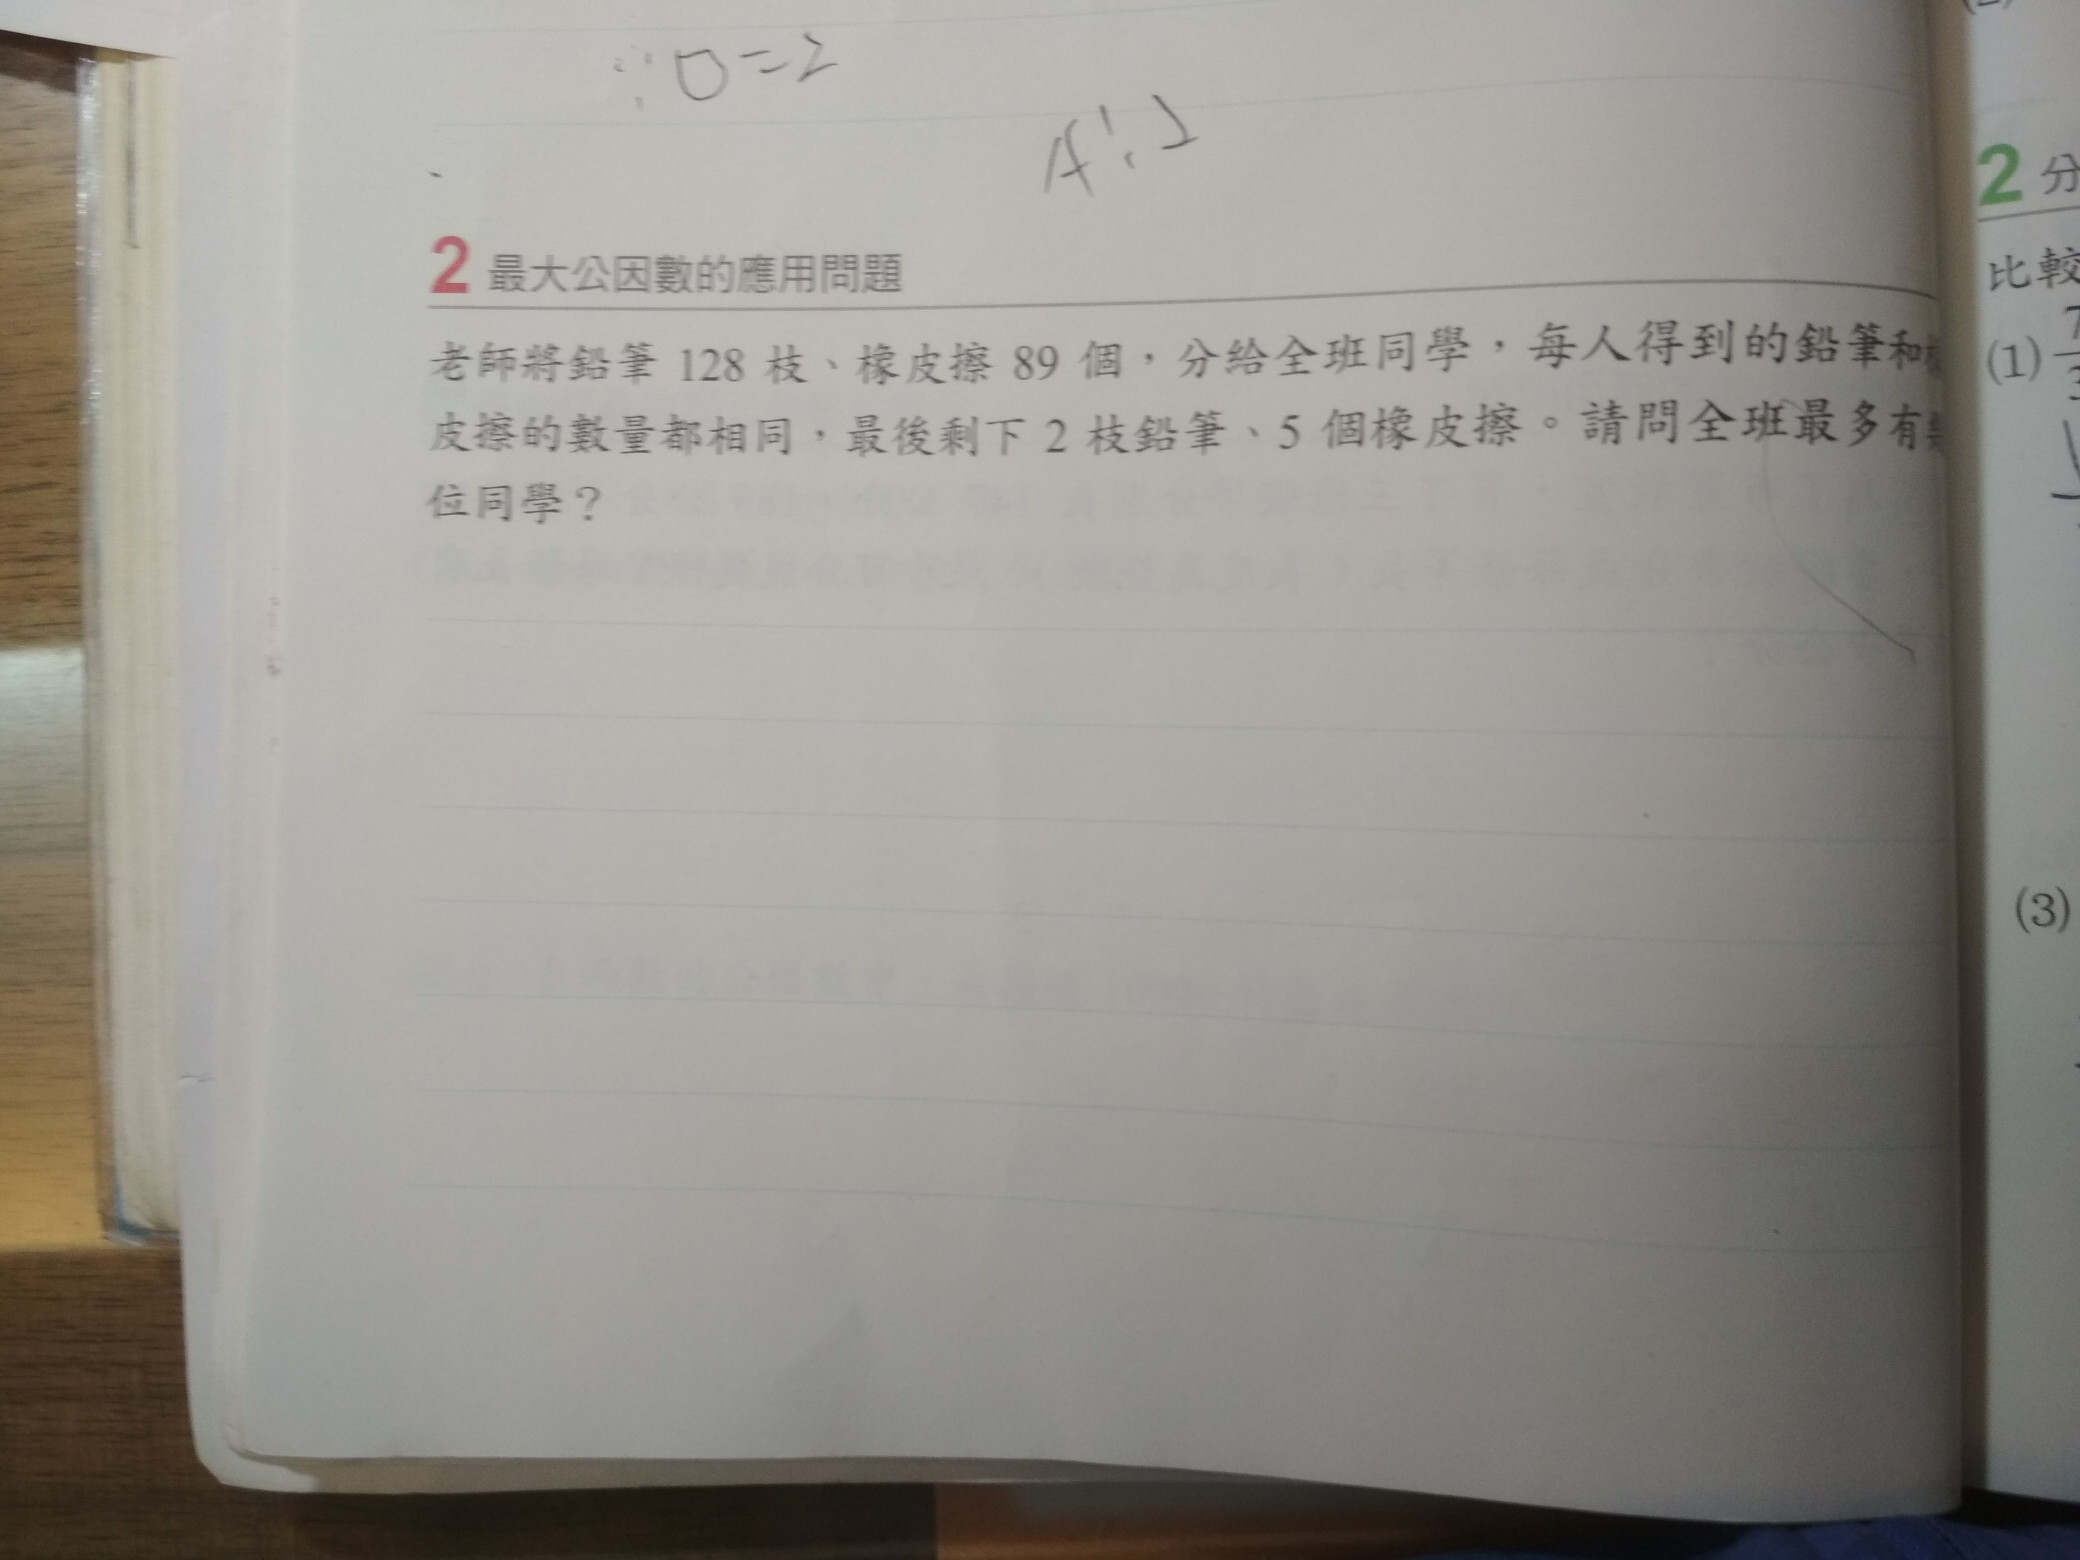 ∵□=2
A:2
2 最大公因數的應用問題
老師將鉛筆 128 枝、橡皮擦 89 個，分給全班同學，每人得到的鉛筆和
皮擦的數量都相同，最後剩下 2 枝鉛筆、5 個橡皮擦。請問全班最多有
位同學？
2 分
比較
(1)
(3)